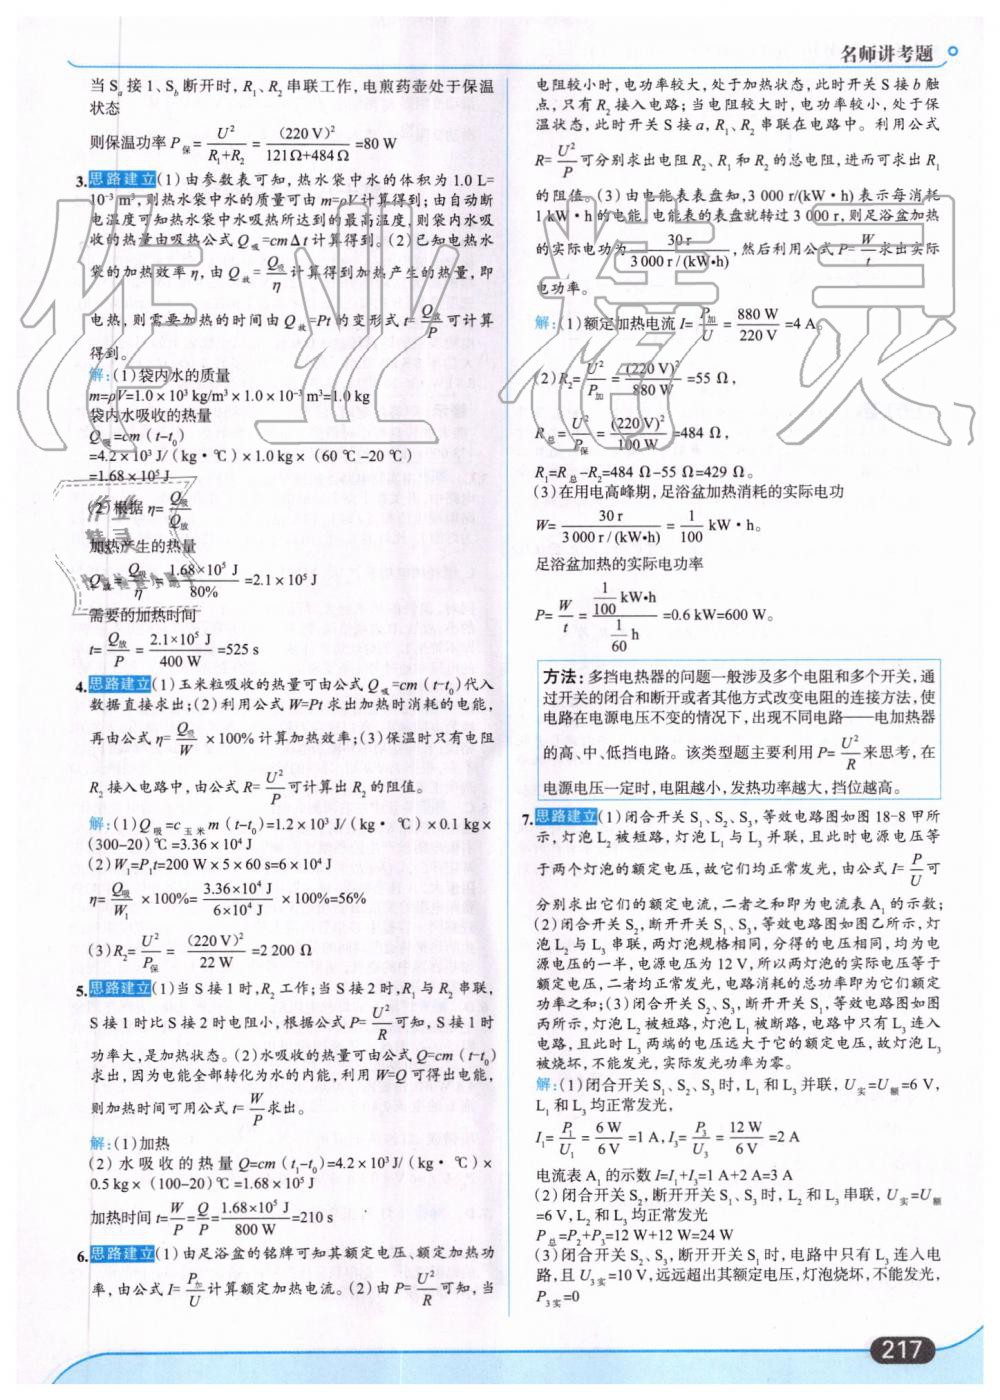 名师讲考题
当 Sa 接 1、Sb 断开时, R1、R2 串联工作, 电煎药壶处于保温
状态
则保温功率 P保= U²/(R1+R2) = (220 V)²/(121Ω+484 Ω) =80 W
3. 思路建立 (1) 由参数表可知, 热水袋中水的体积为 1.0 L=
10⁻³ m³, 则热水袋中水的质量可由 m=ρV 计算得到; 由自动断
电温度可知热水袋中水吸热所达到的最高温度, 则袋内水吸
收的热量由吸热公式 Q吸=cmΔt 计算得到。(2) 已知电热水
袋的加热效率 η, 由 Q放= Q吸/η 计算得到加热产生的热量, 即
电热, 则需要加热的时间由 Q放=Pt 的变形式 t= Q放/P 可计算
得到。
解: (1) 袋内水的质量
m=ρV=1.0×10³ kg/m³×1.0×10⁻³ m³=1.0 kg
袋内水吸收的热量
Q吸=cm (t-t0)
=4.2×10³ J/(kg·℃)×1.0 kg×(60 ℃-20 ℃)
=1.68×10⁵ J
(2) 根据 η= Q吸/Q放
加热产生的热量
Q放= Q吸/η = 1.68×10⁵ J/80% =2.1×10⁵ J
需要的加热时间
t= Q放/P = 2.1×10⁵ J/400 W =525 s
4. 思路建立 (1) 玉米粒吸收的热量可由公式 Q吸=cm (t-t0) 代入
数据直接求出; (2) 利用公式 W=Pt 求出加热时消耗的电能,
再由公式 η= Q吸/W ×100% 计算加热效率; (3) 保温时只有电阻
R2 接入电路中, 由公式 R= U²/P 可计算出 R2 的阻值。
解: (1) Q吸=c玉米m (t-t0)=1.2×10³ J/(kg·℃)×0.1 kg×
(300-20) ℃=3.36×10⁴ J
(2) W1=P1t=200 W×5×60 s=6×10⁴ J
η= Q吸/W1 ×100%= 3.36×10⁴ J/6×10⁴ J ×100%=56%
(3) R2= U²/P保 = (220 V)²/22 W =2 200 Ω
5. 思路建立 (1) 当 S 接 1 时, R2 工作; 当 S 接 2 时, R1 与 R2 串联,
S 接 1 时比 S 接 2 时电阻小, 根据公式 P= U²/R 可知, S 接 1 时
功率大, 是加热状态。(2) 水吸收的热量可由公式 Q=cm (t-t0)
求出, 因为电能全部转化为水的内能, 利用 W=Q 可得出电能,
则加热时间可用公式 t= W/P 求出。
解: (1) 加热
(2) 水吸收的热量 Q=cm (t1-t0)=4.2×10³ J/(kg·℃)×
0.5 kg×(100-20) ℃=1.68×10⁵ J
加热时间 t= W/P = Q/P = 1.68×10⁵ J/800 W =210 s
6. 思路建立 (1) 由足浴盆的铭牌可知其额定电压、额定加热功
率, 由公式 I= P加/U 计算额定加热电流。(2) 由 P= U²/R 可知, 当
电阻较小时, 电功率较大, 处于加热状态, 此时开关 S 接 b 触
点, 只有 R2 接入电路; 当电阻较大时, 电功率较小, 处于保
温状态, 此时开关 S 接 a, R1、R2 串联在电路中。利用公式
R= U²/P 可分别求出电阻 R2、R1 和 R2 的总电阻, 进而可求出 R1
的阻值。(3) 由电能表表盘知, 3 000 r/(kW·h) 表示每消耗
1 kW·h 的电能, 电能表的表盘就转过 3 000 r, 则足浴盆加热
的实际电功为 30 r/3 000 r/(kW·h), 然后利用公式 P= W/t 求出实际
电功率。
解: (1) 额定加热电流 I= P加/U = 880 W/220 V =4 A。
(2) R2= U²/P加 = (220 V)²/880 W =55 Ω,
R总= U²/P保 = (220 V)²/100 W =484 Ω,
R1=R总-R2=484 Ω-55 Ω=429 Ω。
(3) 在用电高峰期, 足浴盆加热消耗的实际电功
W= 30 r/3 000 r/(kW·h) = 1/100 kW·h。
足浴盆加热的实际电功率
P= W/t = (1/100 kW·h)/(1/60 h) =0.6 kW=600 W。
方法: 多挡电热器的问题一般涉及多个电阻和多个开关, 通
过开关的闭合和断开或者其他方式改变电阻的连接方法, 使
电路在电源电压不变的情况下, 出现不同电路——电加热器
的高、中、低挡电路。该类型题主要利用 P= U²/R 来思考, 在
电源电压一定时, 电阻越小, 发热功率越大, 挡位越高。
7. 思路建立 (1) 闭合开关 S1、S2、S3, 等效电路图如图 18-8 甲所
示, 灯泡 L2 被短路, 灯泡 L1 与 L3 并联, 且此时电源电压等
于两个灯泡的额定电压, 故它们均正常发光, 由公式 I= P/U 可
分别求出它们的额定电流, 二者之和即为电流表 A1 的示数;
(2) 闭合开关 S2, 断开开关 S1、S3, 等效电路图如图乙所示, 灯
泡 L2 与 L3 串联, 两灯泡规格相同, 分得的电压相同, 均为电
源电压的一半, 电源电压为 12 V, 所以两灯泡的实际电压等于
额定电压, 二者均正常发光, 电路消耗的总功率即为它们额定
功率之和; (3) 闭合开关 S2、S3, 断开开关 S1, 等效电路图如图
丙所示, 灯泡 L2 被短路, 灯泡 L1 被断路, 电路中只有 L3 连入
电路, 且此时 L3 两端的电压远大于它的额定电压, 故灯泡 L3
被烧坏, 不能发光, 实际发光功率为零。
解: (1) 闭合开关 S1、S2、S3 时, L1 和 L3 并联, U实=U额=6 V,
L1 和 L3 均正常发光,
I1= P1/U1 = 6 W/6 V =1 A, I3= P3/U3 = 12 W/6 V =2 A
电流表 A1 的示数 I=I1+I3=1 A+2 A=3 A
(2) 闭合开关 S2, 断开开关 S1、S3 时, L2 和 L3 串联, U实=U额
=6 V, L2 和 L3 均正常发光
P总=P2+P3=12 W+12 W=24 W
(3) 闭合开关 S2、S3, 断开开关 S1 时, 电路中只有 L3 连入电
路, 且 U3实=10 V, 远远超出其额定电压, 灯泡烧坏, 不能发光,
P3实=0
217
作业精灵